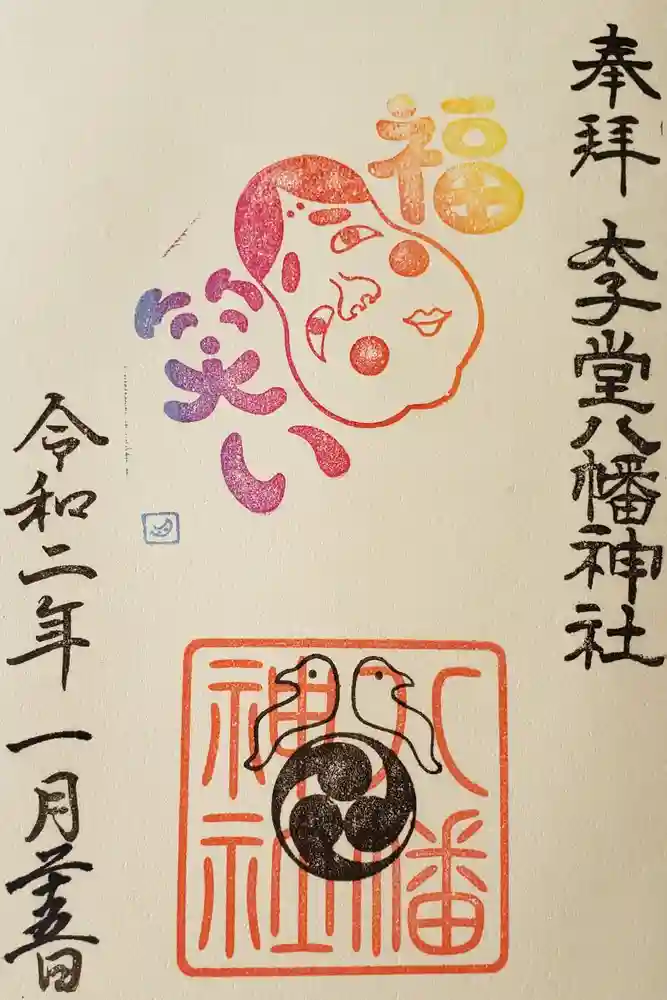 奉拝 太子堂八幡神社
福
笑い
八幡
神社
令和二年一月 日